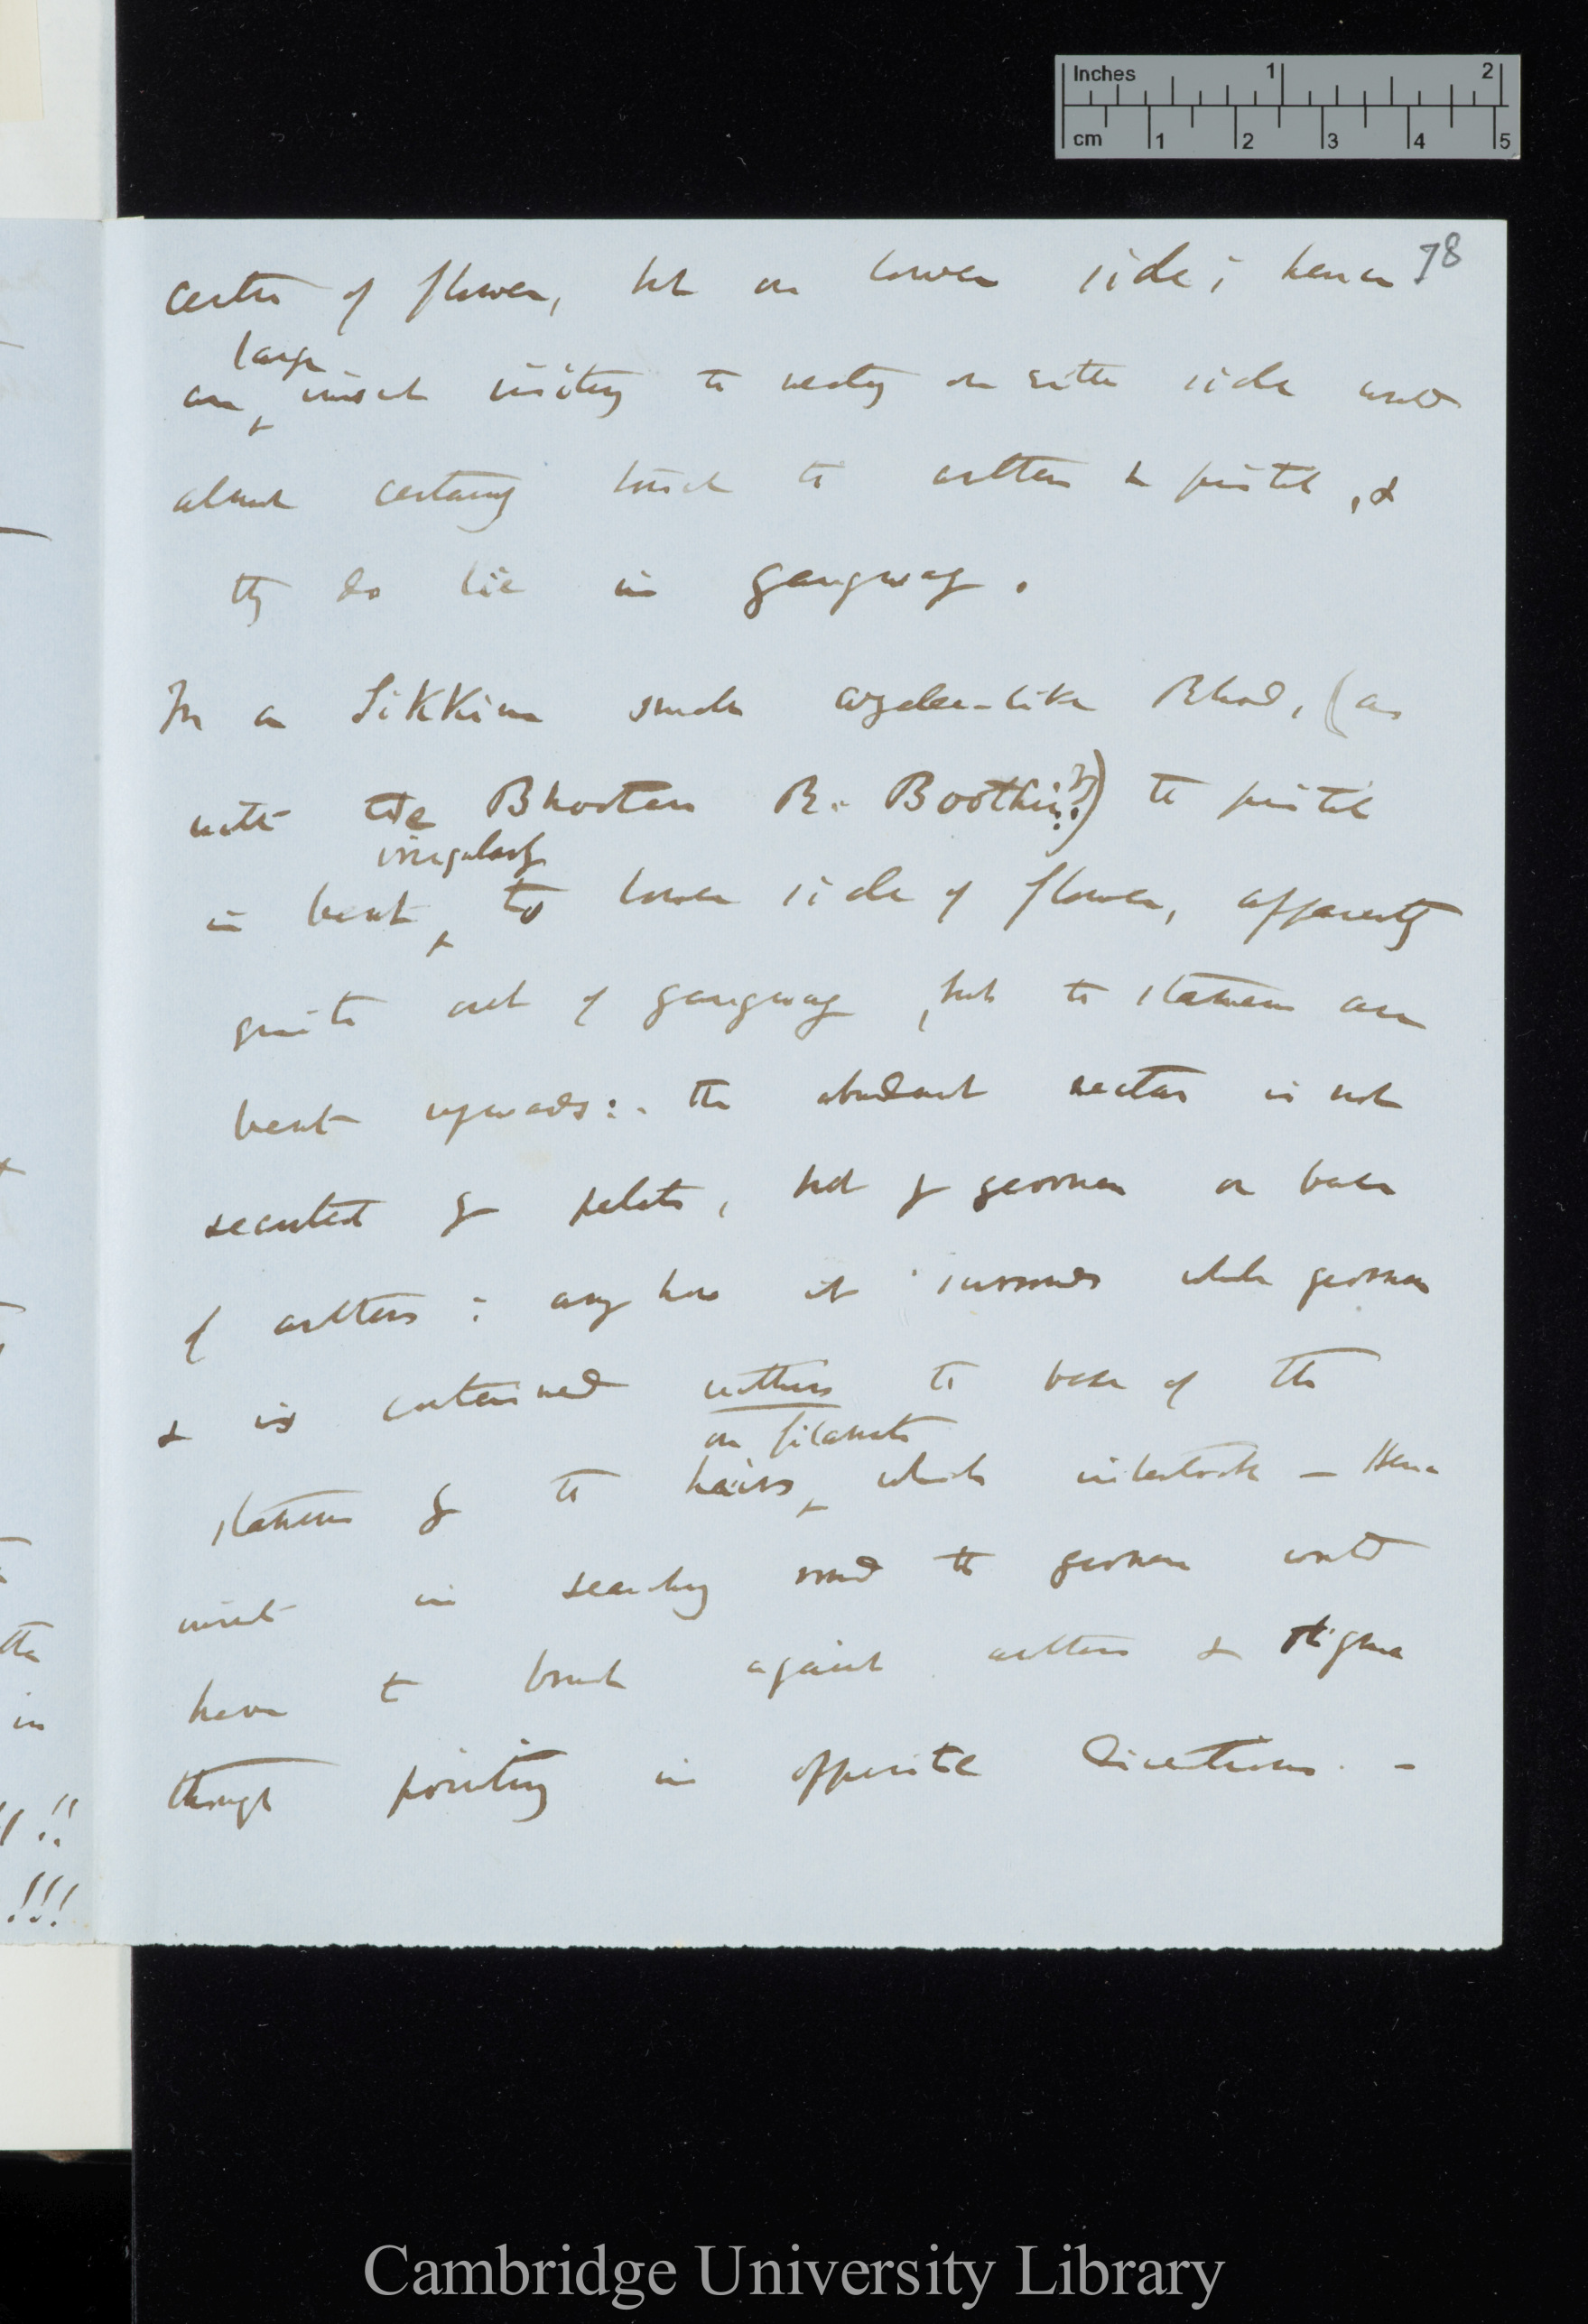 Inches 1 2
cm 1 2 3 4 5
78
centre of flower, but on lower side; hence
large
an insect visiting the nectary on either side would
almost certainly touch the anthers & pistil, &
they do lie in gangway.
In a Sikkim small azalea-like Rhod, (as
with the Bhootan R. Boothii??) the pistil
irregularly
is bent to lower side of flower, apparently
quite out of gangway, but the stamens are
bent upwards:. the abundant nectar is not
secreted by petals, but by germen or base
of anthers: any how it surrounds whole germen
& is contained within the base of the
on filaments
stamens by the hairs which interlock — Hence
insect in searching round the germen would
have to brush against anthers & stigma
though pointing in opposite directions. —
tha
in
!!
!!!
Cambridge University Library